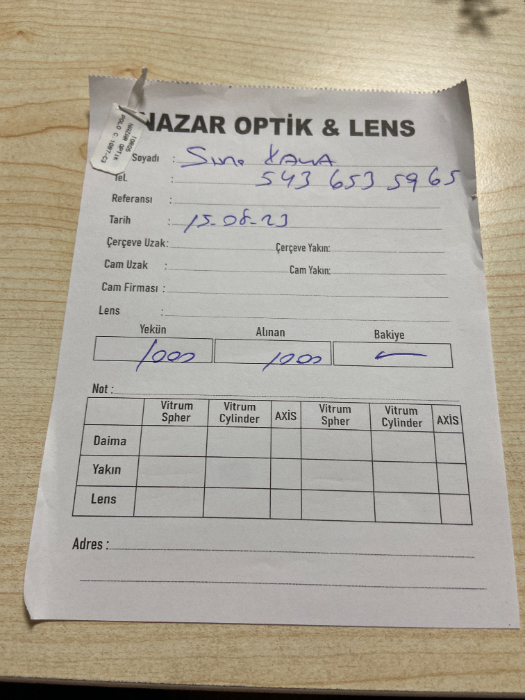 NAZAR OPTİK & LENS
Soyadı :
Tel. : 543 653 5965
Referansı :
Tarih : 15-08-23
Çerçeve Uzak: Çerçeve Yakın:
Cam Uzak : Cam Yakın:
Cam Firması :
Lens :
Yekün Alınan Bakiye
1000 1000 —
Not :
Vitrum Spher Vitrum Cylinder AXİS Vitrum Spher Vitrum Cylinder AXİS
Daima
Yakın
Lens
Adres :